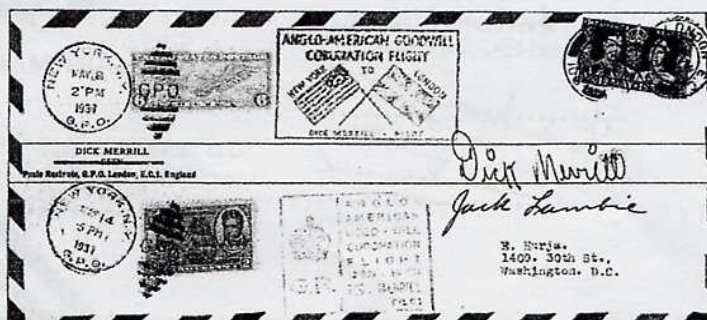 NEW YORK, N.Y.
MAY 8
2 PM
1937
G.P.O.
G.P.O.
6 6
ANGLO-AMERICAN GOODWILL
CORONATION FLIGHT
TO
NEW YORK
LONDON
DICK MERRILL - PILOT
LONDON
DICK MERRILL
Poste Restante, G.P.O. London, E.C.1. England
Dick Merrill
Jack Lambie
NEW YORK, N.Y.
14
5 PM
1937
G.P.O.
ANGLO
AMERICAN
GOOD-WILL
CORONATION
FLIGHT
MERRILL
PILOT
E. Hurja.
1409. 30th St.,
Washington. D.C.